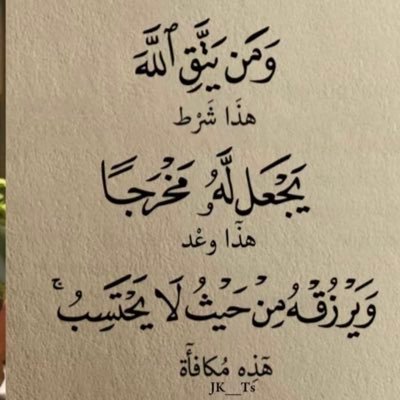 وَمَن يَتَّقِ ٱللَّهَ
هذَا شَرْط
يَجْعَل لَّهُۥ مَخْرَجًا
هذَا وعْد
وَيَرْزُقْهُ مِنْ حَيْثُ لَا يَحْتَسِبُ ۚ
هَٰذِه مُكافأَة
JK__Ts